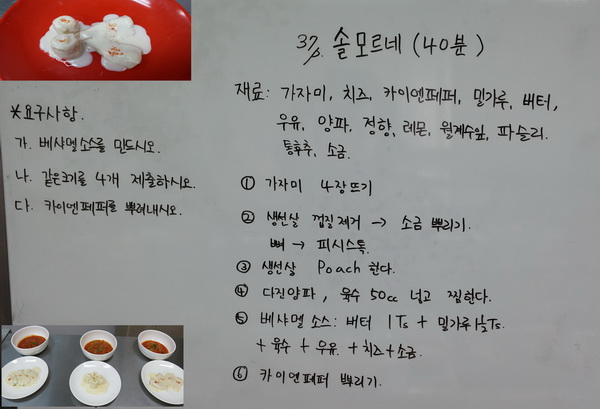 37 솔모르네 (40분)
재료: 가자미, 치즈, 카이엔페퍼, 밀가루, 버터,
우유, 양파, 정향, 레몬, 월계수잎, 파슬리.
통후추, 소금.
① 가자미 4장뜨기
② 생선살 껍질제거 → 소금 뿌리기.
뼈 → 피시스톡.
③ 생선살 Poach 한다.
④ 다진양파, 육수 50cc 넣고 찜한다.
⑤ 베샤멜 소스: 버터 1Ts + 밀가루 1½Ts.
+ 육수 + 우유 + 치즈 + 소금.
⑥ 카이엔페퍼 뿌리기.
*요구사항.
가. 베샤멜소스를 만드시오.
나. 같은크기를 4개 제출하시오.
다. 카이엔페퍼를 뿌려내시오.